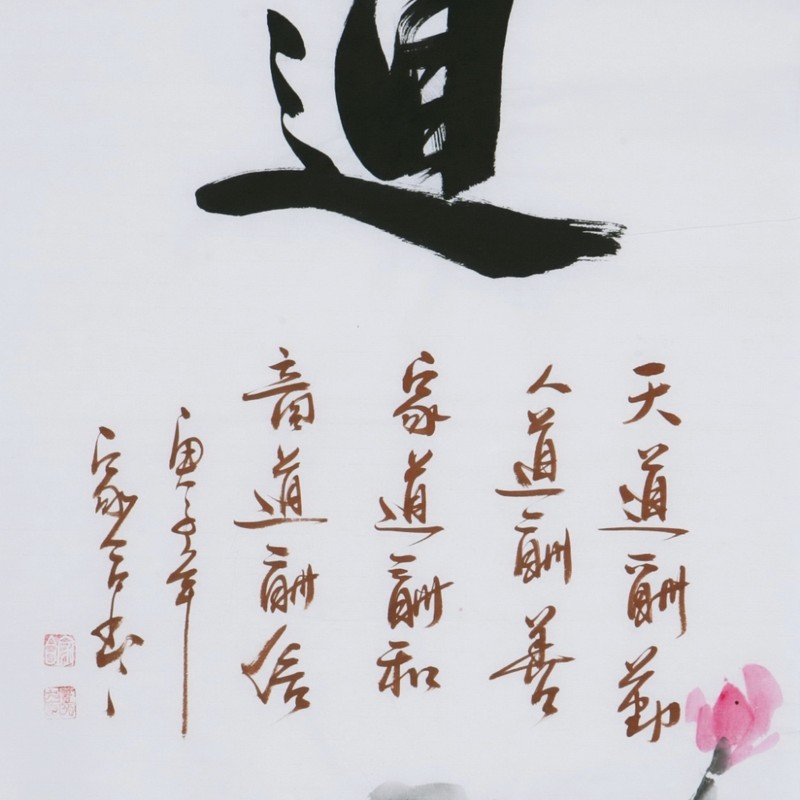 道
天道酬勤
人道酬善
家道酬和
商道酬信
庚子年
家合书